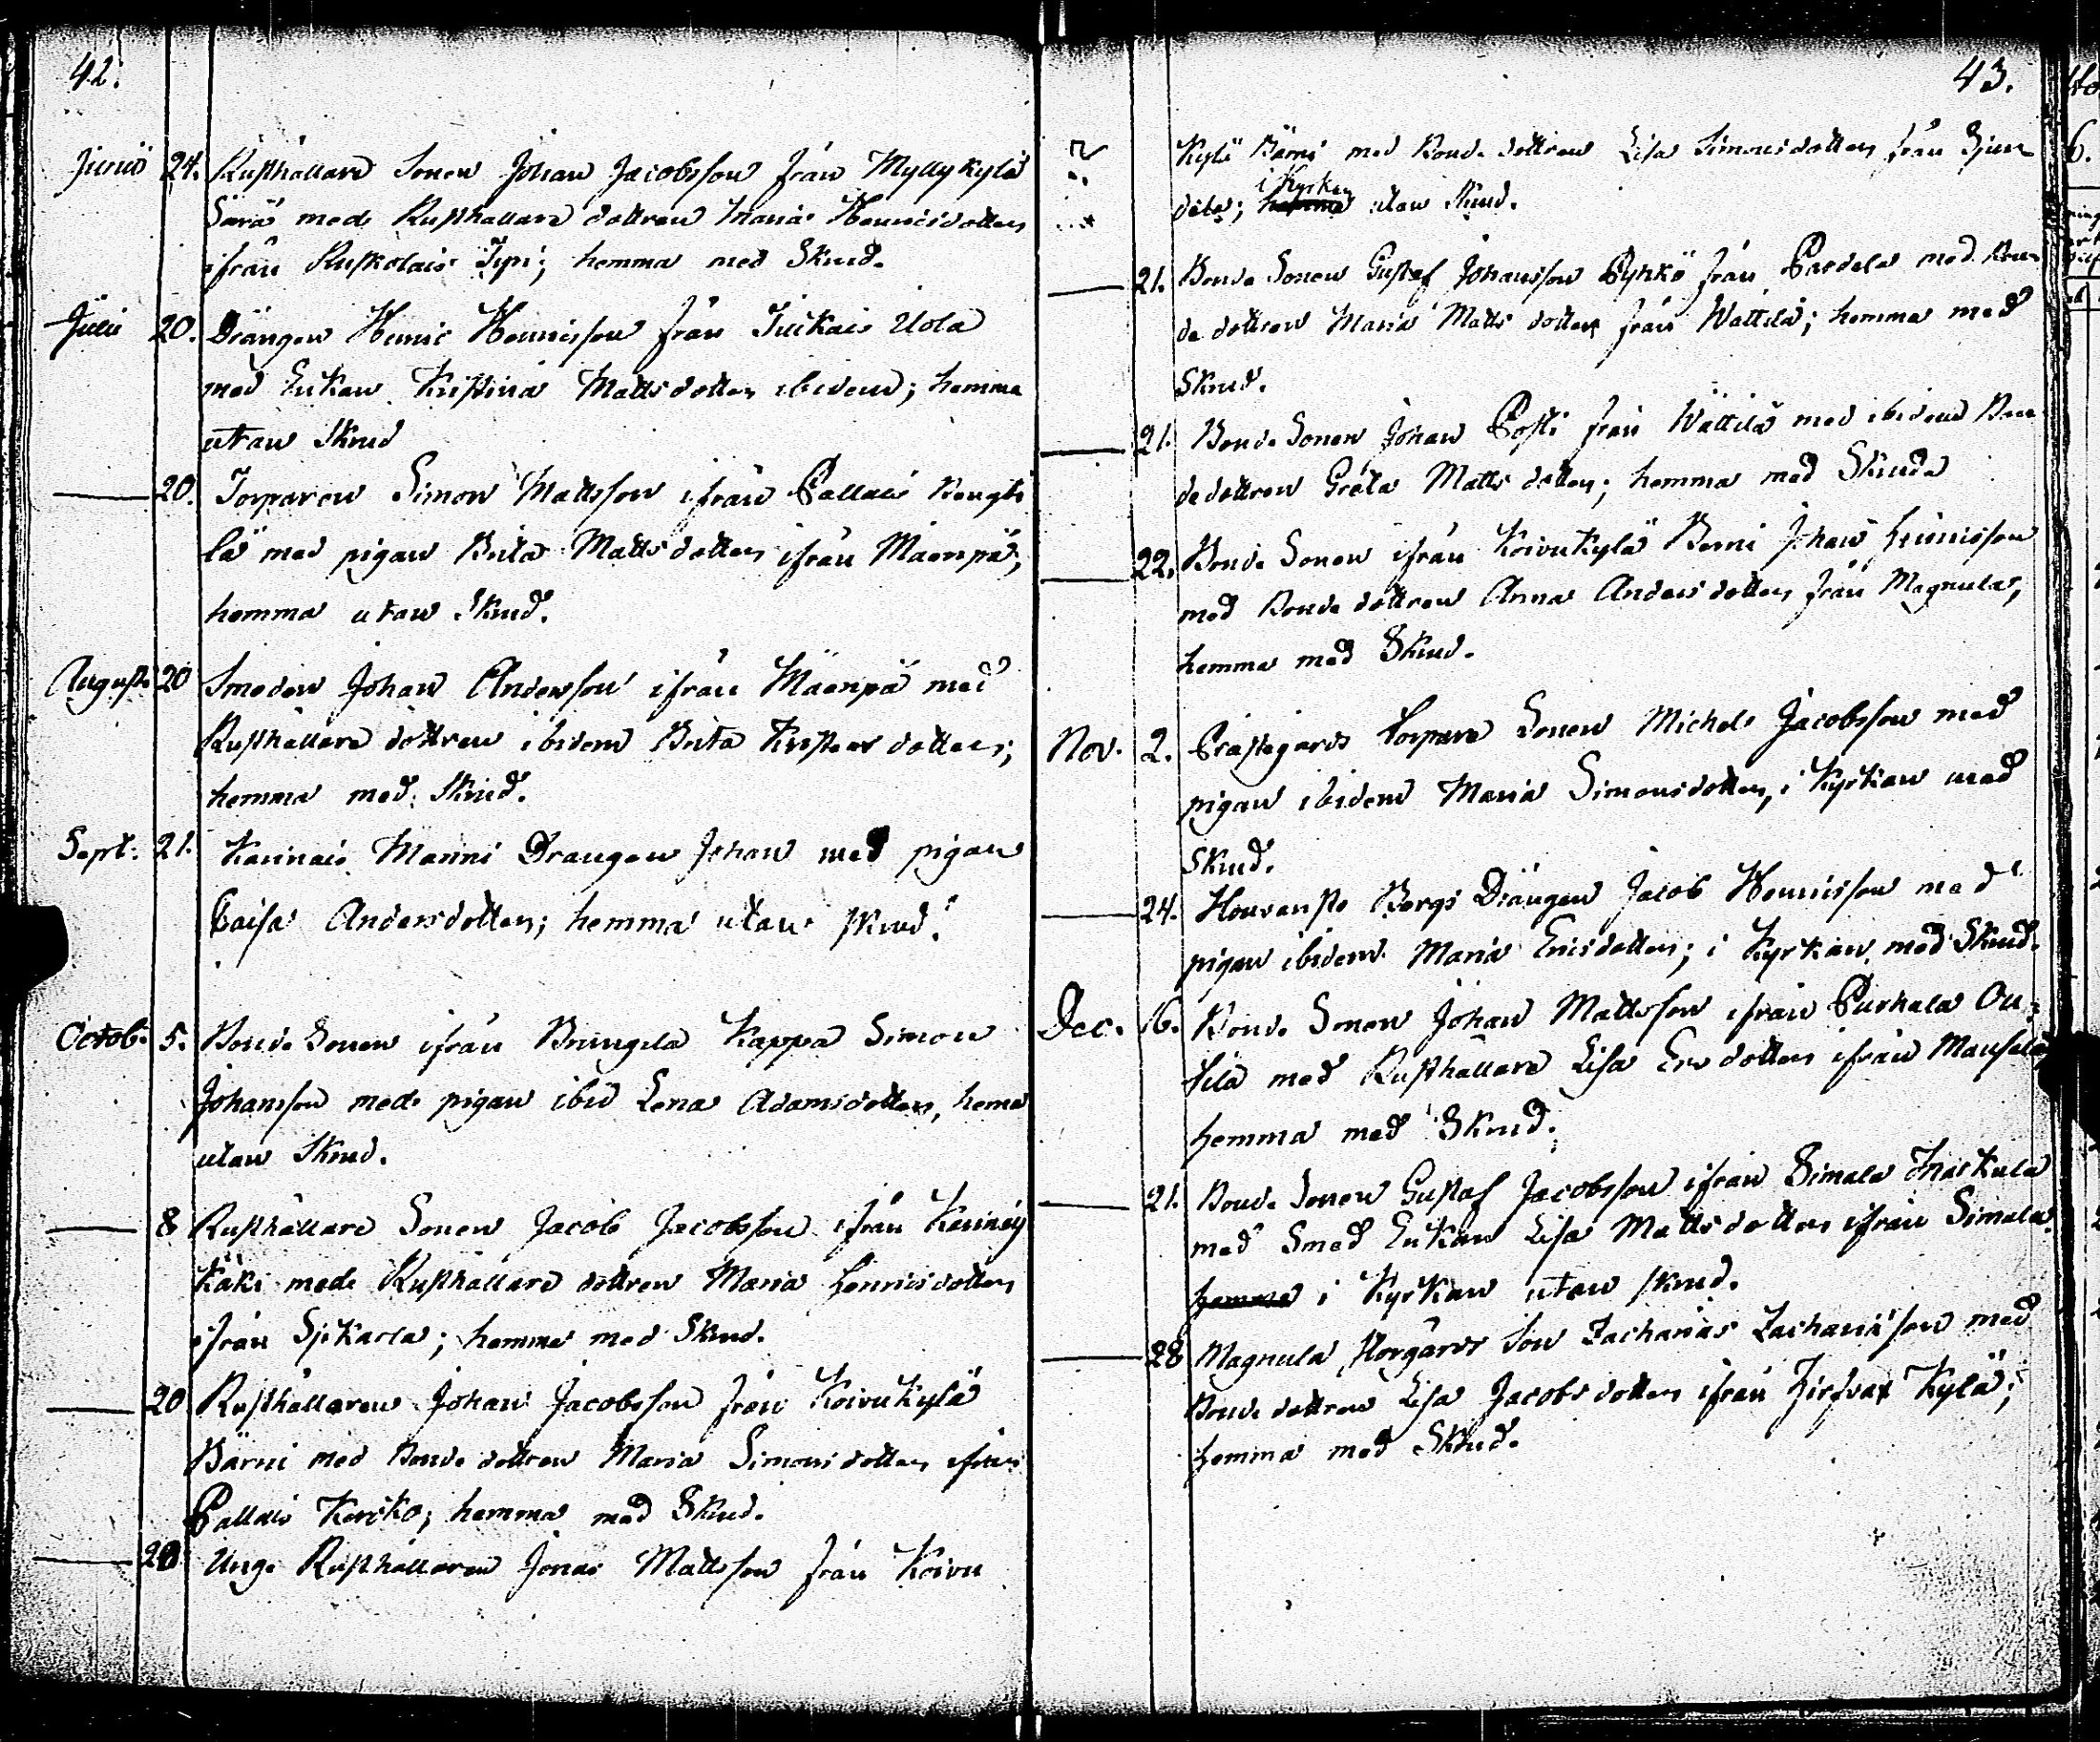 42.
Junii 24. Rusthållare Sonen Johan Jacobsson från Myllykylä
Särä med Rusthållare dottren Maria Henricsdotter
ifrån Ruskolais Typi; hemma med Skrud.
Julii 20. Drängen Henric Henricsson från Tuckais Uola
med Enkan Kristina Mattsdotter ibidem; hemma
utan Skrud
20. Torparen Simon Mattsson ifrån Pallais Bengti
lä med pigan Brita Matts dotter ifrån Mäenpä;
hemma utan Skrud.
Augusti 20 Smeden Johan Andersson ifrån Mäenpä med
Rusthållare dottren ibidem Brita Kristers dotter;
hemma med Skrud.
Sept: 21. Karinais Manni Drängen Johan med pigan
Caisa Andersdotter; hemma utan skrud.
Octob: 5. Bonde Sonen ifrån Bringila Kappa Simon
Johansson med pigan ibid Lena Adamsdotter, hema
utan Skrud.
8 Rusthållare Sonen Jacob Jacobsson ifrån
Käki med Rusthållare dottren Maria Henricsdotter
ifrån; hemma med Skrud.
20 Rusthållaren Johan Jacobsson från Koivukylä
Bärni med Bonde dottren Maria Simons dotter ifrån
Pallais Kersko; hemma med Skrud.
20 Unge Rusthållaren Jonas Mattsson från Koivu
43.
Kylä Bärni med Bonde dottren Lisa Simonsdotter från
i Kyrkan
dela; hemma utan Skrud.
21. Bonde Sonen Gustaf Johansson Pyhkö från Pardela med Bon
de dottren Maria Matts dotter från Wättilä; hemma med
Skrud.
21. Bonde Sonen Johan Posti från Wättilä med ibidem Bon
de dottren Greta Matts dotter; hemma med Skruda
22. Bonde Sonen ifrån Koivukylä Berni Johan Henricsson
med Bonde dottren Anna Anders dotter från Magnula,
hemma med Skrud.
Nov. 2. Prästegårds Torpare Sonen Michel Jacobsson med
pigan ibidem Maria Simonsdotter, i Kyrkan med
Skrud.
24. Bergs Drängen Jacob Henricsson med
pigan ibidem Maria Ericsdotter; i Kyrkan med Skrud.
Dec. 16. Bonde Sonen Johan Mattsson ifrån Purhala Ou-
tila med Rusthållare Lisa Ers dotter ifrån Mansala,
hemma med Skrud.
21. Bonde Sonen Gustaf Jacobsson ifrån Simala
med Smed Enkan Lisa Matts dotter ifrån Simala
hemma i Kyrkan utan skrud.
28 Magnula Norgårds Son Zacharias Zachariasson med
Bonde dottren Lisa Jacobs dotter ifrån Hirfvas Kylä;
hemma med Skrud.